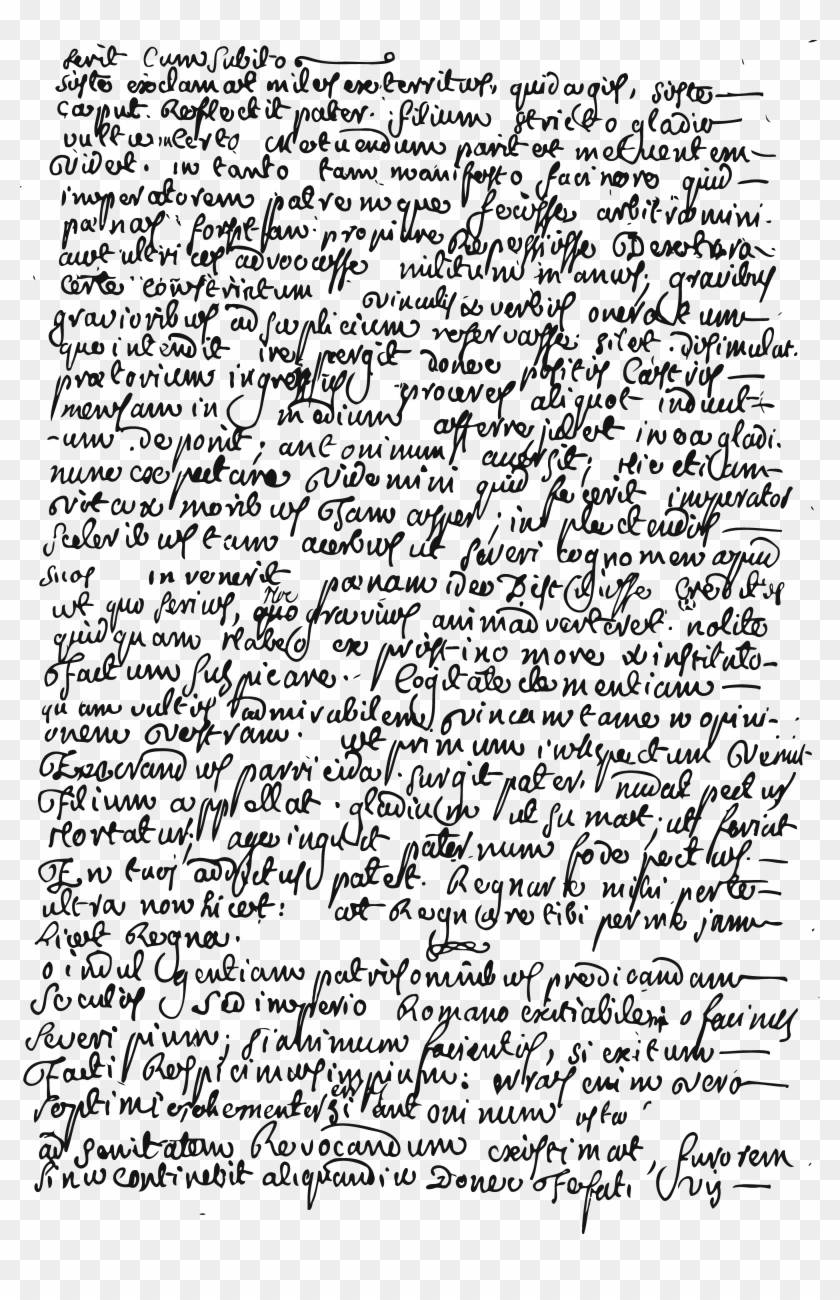 ferit Cum Subito
siste exclamat miles exterritus, quid agis, siste
Caput. Reflectit pater. filium stricto gladio
vultu incerto metuendum parit et metuentem
Videt. in tanto tam manifesto facinore quid
imperatorem patremque fecisse arbitramini.
pænas forsitan propiure Repetiisse Dextera
aut ultrices advocasse militum manus; gravibus
certe constrictum vinculis & verbis oneratum
gravioribus ad suplicium reservasse silet. disimulat.
quo intendit ire pergit donec positis Castris
prætorium ingressus proceres aliquot indust-
mensam in medium afferre jubet in ea gladi.
-um deponit; antoninum accersit; Hic etiam
nunc expectare Videmini quid fecerit imperator
vita & moribus Tam asper; in plectendis
sceleribus tam acerbus ut severi cognomen apud
suos invenerit pænam ideo Distulisse Creditis
ut quo serius, hoc quo gravius animadverteret. nolite
quidquam relabo ex pristino more & instituto
Factum suspicare. Cogitate clementiam
quam vultis admirabilem vincam tamen opini-
onem Vestram. ut primum in conspectum Venit
Execrandus parricida. surgit pater. nudat pectus
Filium appellat. gladium ut sumat; ut feriat
Hortatur; age inquit paternum fode pectus.
En tuis addictus patet. Regnare mihi per te
ultra non licet: at Regnare tibi per me jam
Licet Regna.
o indulgentiam patris omnibus predicandam
Seculis Sed imperio Romano exitiabilem o facinus
Severi pium; si animum facientis, si exitum
Facti Respicimus impium: erras enim vero
septimi vehementer si antoninum ista
ad sanitatem Revocandum existimas, furorem
sinu continebit aliquandiu Donec Te fati vis